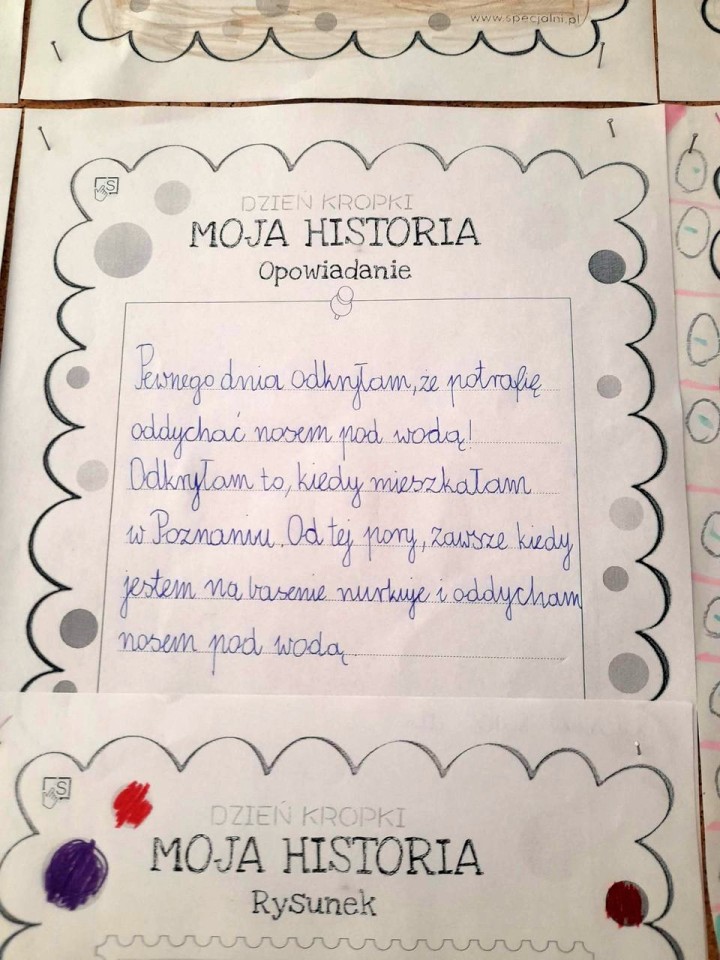 www.specjalni.pl
DZIEŃ KROPKI
MOJA HISTORIA
Opowiadanie
Pewnego dnia odkryłam, że potrafię
oddychać nosem pod wodą!
Odkryłam to, kiedy mieszkałam
w Poznaniu. Od tej pory, zawsze kiedy
jestem na basenie nurkuje i oddycham
nosem pod wodą.
S
DZIEŃ KROPKI
MOJA HISTORIA
Rysunek
S